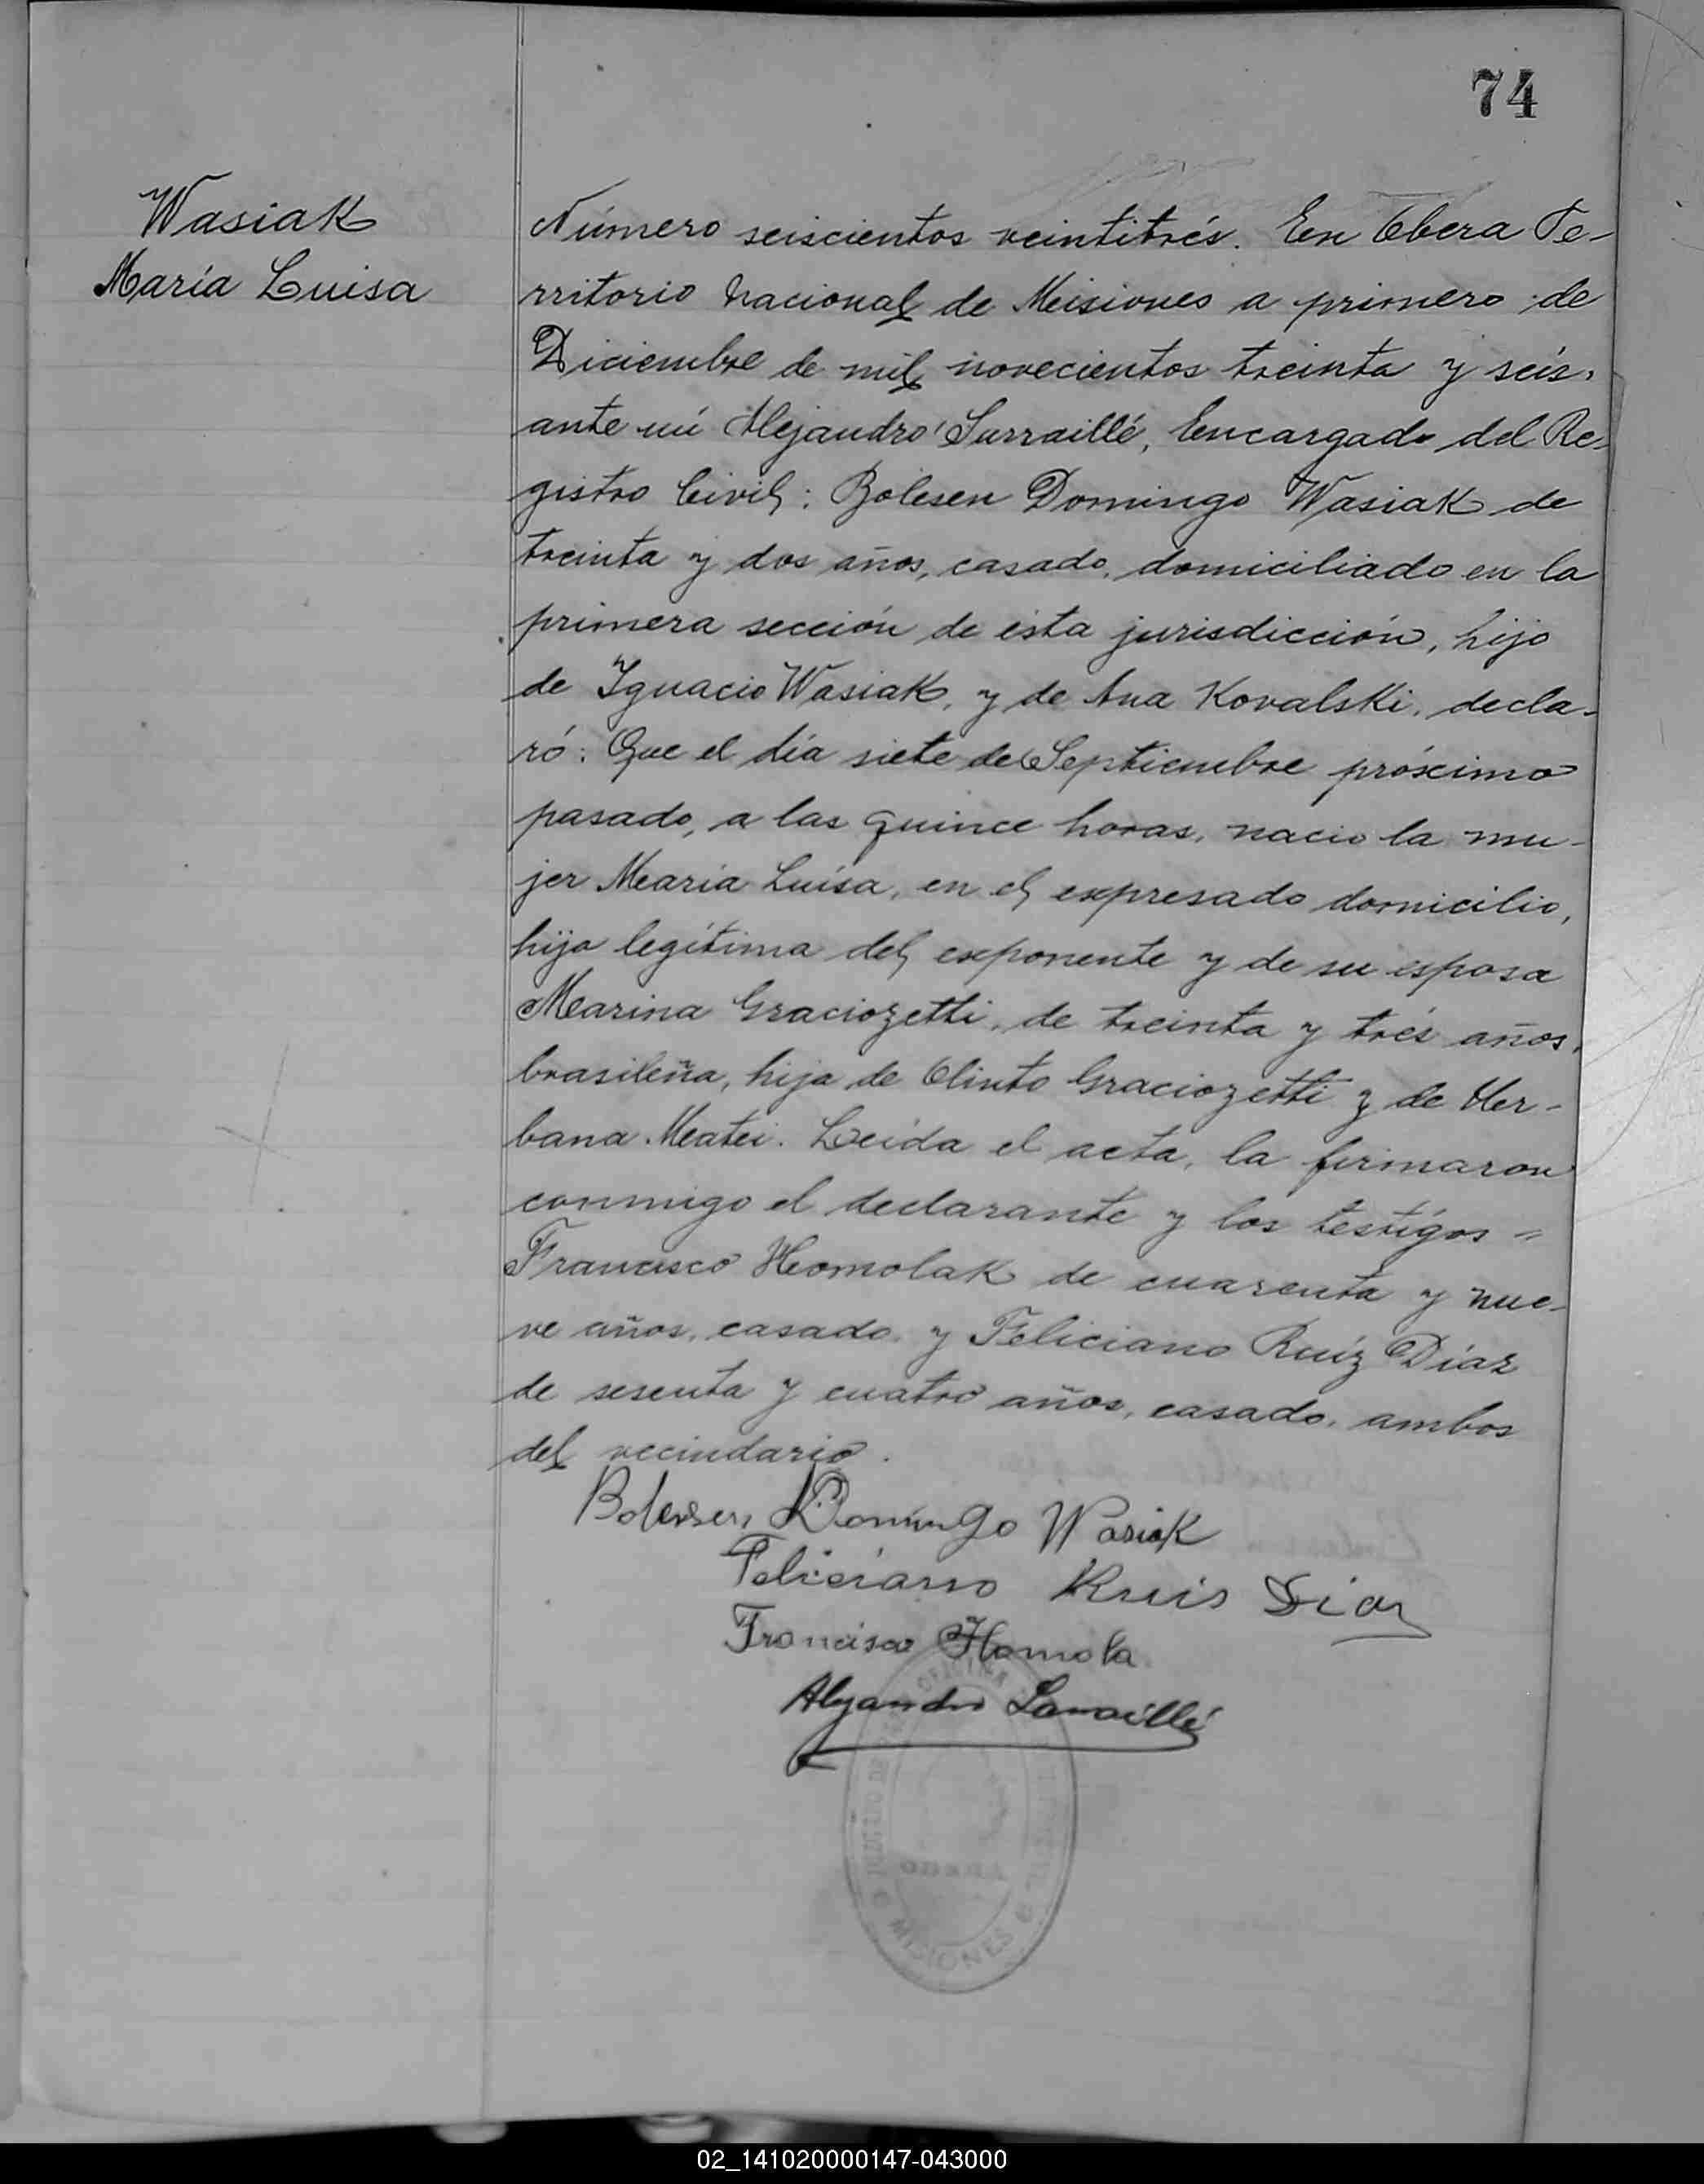 74
Wasiak
María Luisa
Número seiscientos veintitrés. En Obera Te-
rritorio Nacional de Misiones a primero de
Diciembre de mil novecientos treinta y seis,
ante mí Alejandro Surraillé, Encargado del Re-
gistro Civil: Bolesen Domingo Wasiak de
treinta y dos años, casado, domiciliado en la
primera sección de ésta jurisdicción, hijo
de Ignacio Wasiak, y de Ana Kovalski, decla-
ró: Que el día siete de Septiembre próximo
pasado, a las quince horas, nacio la mu-
jer María Luísa, en el expresado domicilio,
hija legítima del exponente y de su esposa
Marina Graciozetti, de treinta y trés años,
brasileña, hija de Olinto Graciozetti y de Her-
bana Matei. Leída el acta, la firmaron
conmigo el declarante y los testigos =
Francisco Homolak de cuarenta y nue-
ve años, casado, y Feliciano Ruíz Díaz
de sesenta y cuatro años, casado, ambos
del vecindario.
Bolessen Domingo Wasiak
Feliciano Ruis Diaz
Francisco Homola
Alejandro Surraillé
OFICINA
MISIONES
02_141020000147-043000